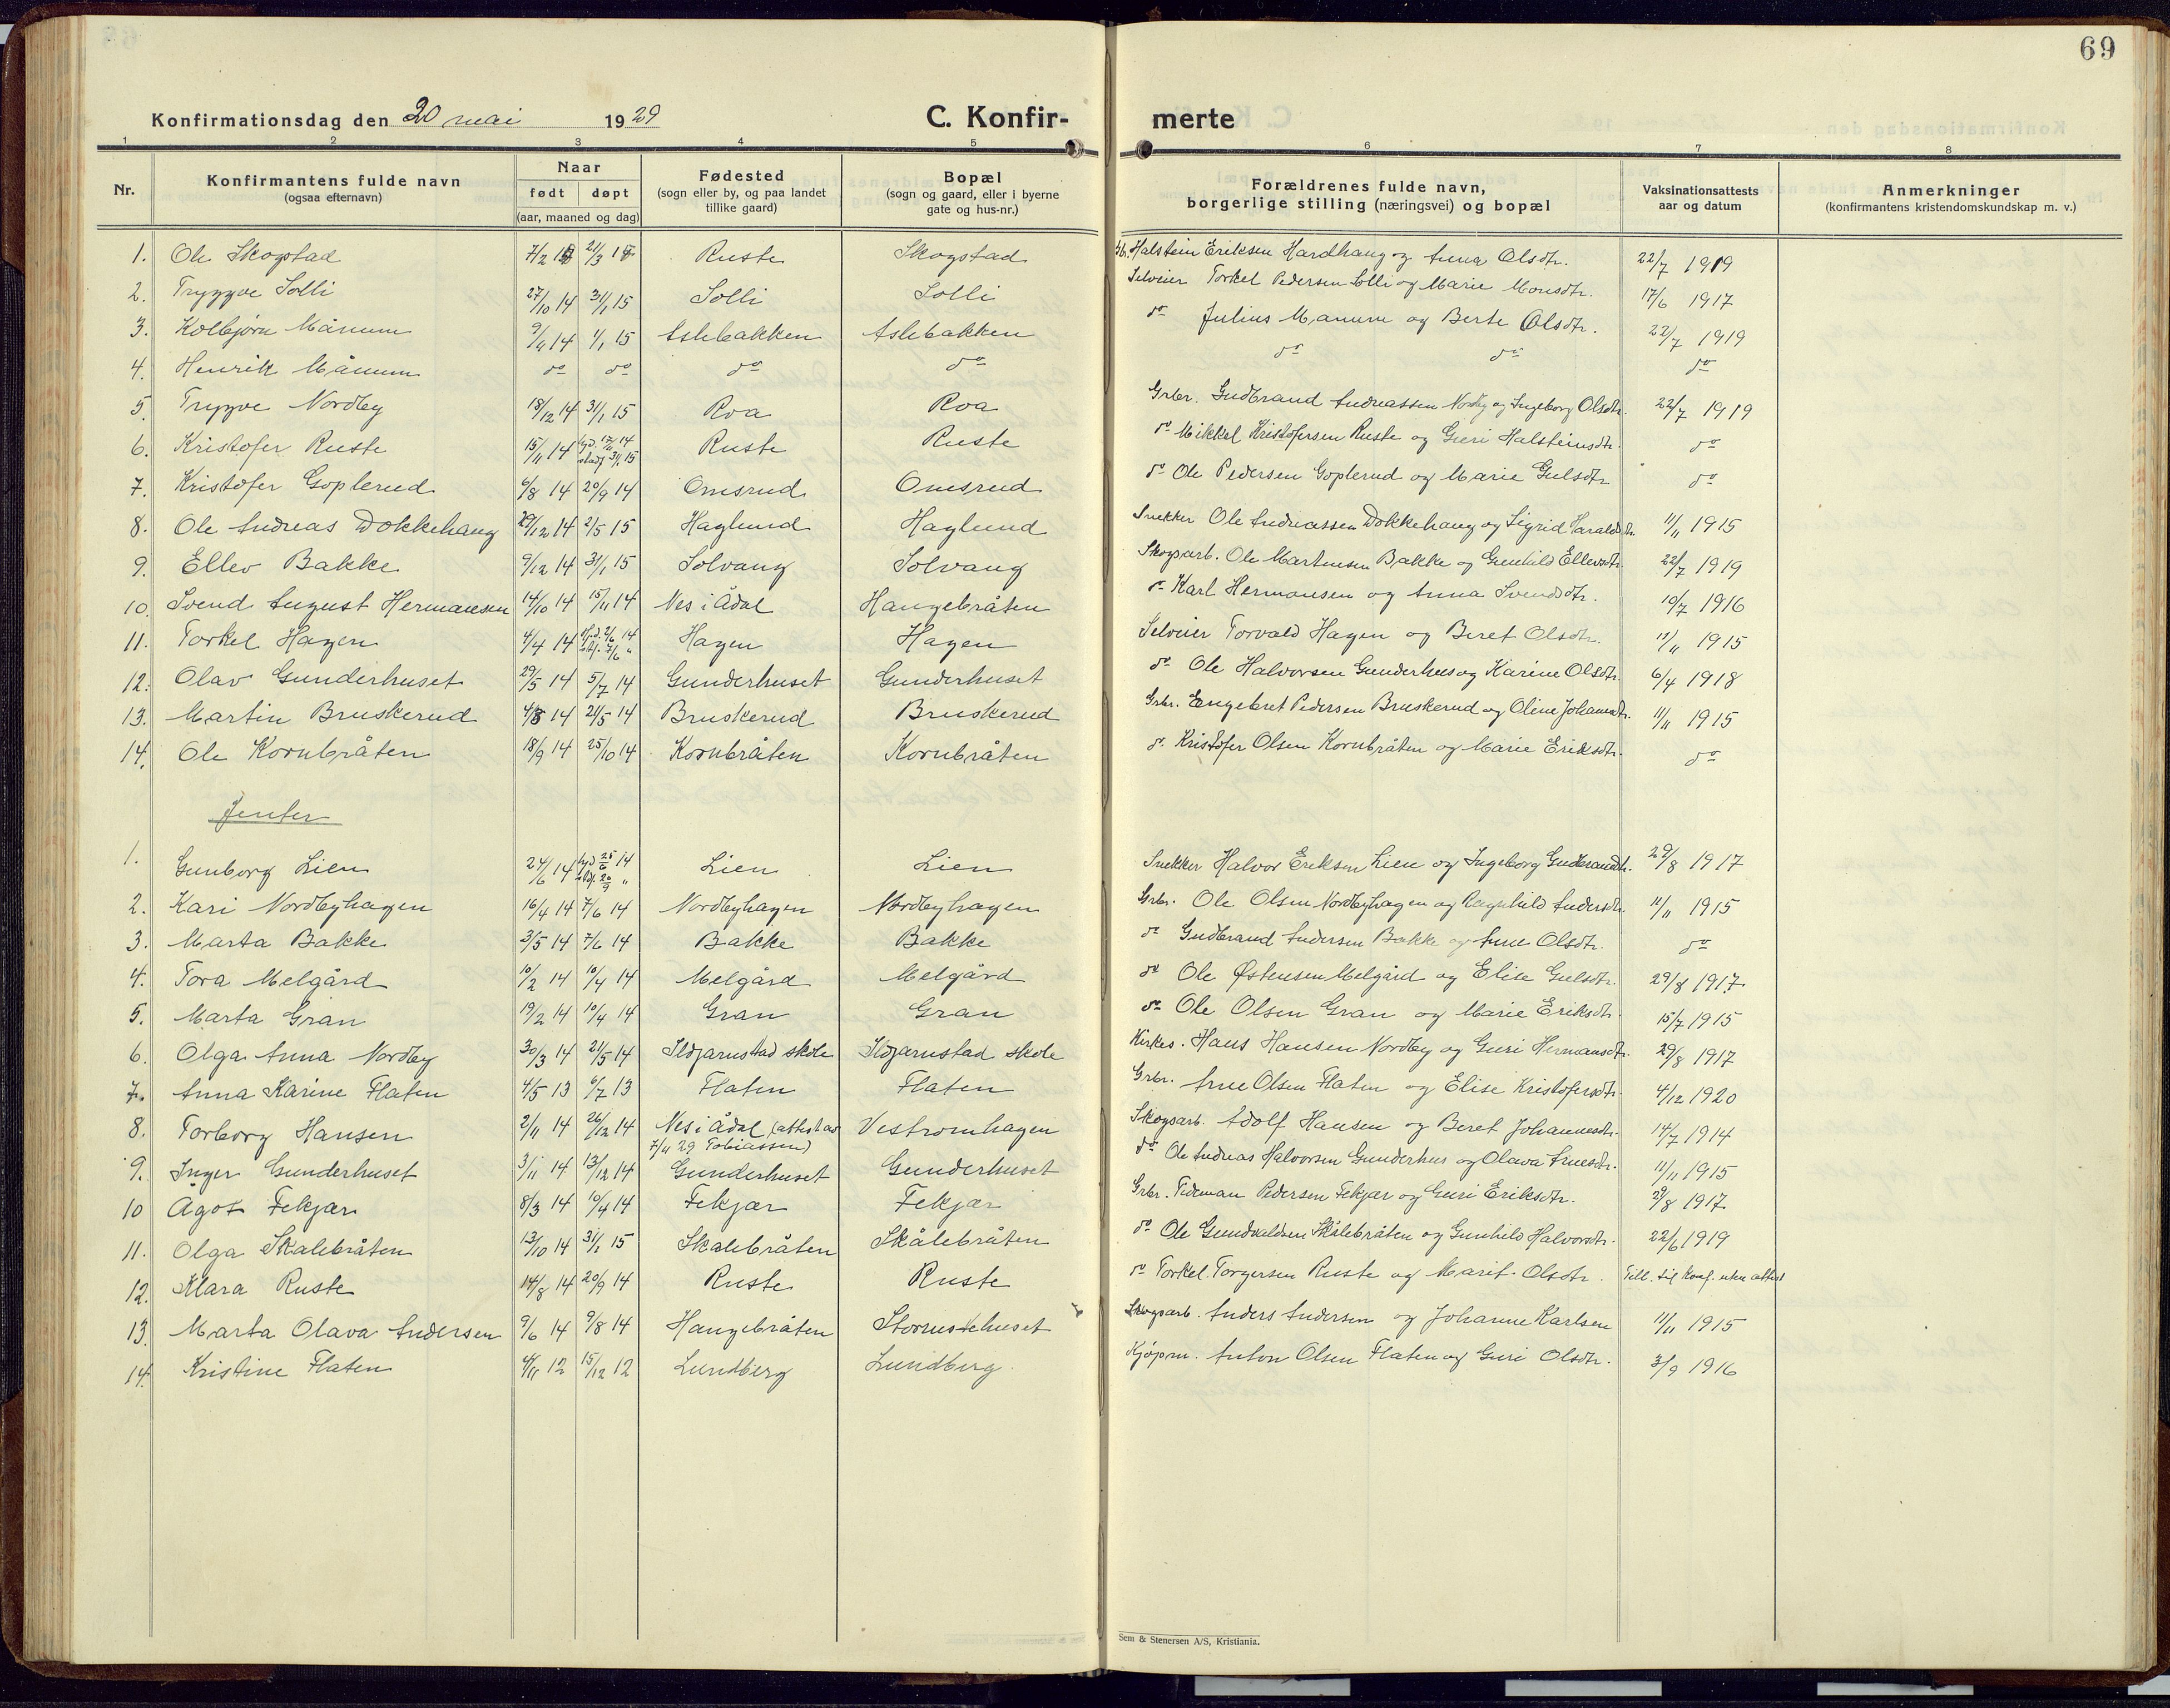 69
Konfirmationsdag den 20 mai 1929 C. Konfir- merte
1 2 3 4 5 6 7 8
Nr. Konfirmantens fulde navn (ogsaa efternavn) Naar født døpt (aar, maaned og dag) Fødested (sogn eller by, og paa landet tillike gaard) Bopæl (sogn og gaard, eller i byerne gate og hus-nr.) Forældrenes fulde navn, borgerlige stilling (næringsvei) og bopæl Vaksinationsattests aar og datum Anmerkninger (konfirmantens kristendomskundskap m. v.)
1. Ole Skogstad 7/2 21/3 Ruste Skogstad Halstein Eriksen Hardhaug og Anna Olsdtr. 22/7 1919
2. Tryggve Solli 27/10 14 31/1 15 Solli Solli Selveier Torkel Pedersen Solli og Marie Monsdtr. 17/6 1917
3. Kolbjørn Månum 9/4 14 1/1 15 Aslebakken Aslebakken do Julius Manum og Berte Olsdtr. 22/7 1919
4. Henrik Månum do do do do do do do
5. Trygve Nordby 18/12 14 31/1 15 Roa Roa Grbr. Gudbrand Andreassen Nordby og Ingeborg Olsdtr. 22/7 1919
6. Kristofer Ruste 15/11 14 hjd. 17/11 14 stadf. 31/1 15 Ruste Ruste do Mikkel Kristofersen Ruste og Guri Halsteinsdtr. do
7. Kristofer Goplerud 6/8 14 20/9 14 Omsrud Omsrud do Ole Pedersen Goplerud og Marie Gulsdtr do
8. Ole Andreas Dokkehaug 29/12 14 2/5 15 Haglund Haglund Snekker Ole Andreassen Dokkehaug og Sigrid Haraldsdtr. 11/11 1915
9. Ellev Bakke 9/12 14 31/1 15 Solvang Solvang Skogsarb. Ole Martensen Bakke og Gunhild Ellevsdtr. 22/7 1919
10. Svend August Hermansen 14/10 14 15/11 14 Nes i Ådal Haugebråten do Karl Hermansen og Anna Svendsdtr. 10/7 1916
11. Torkel Hagen 4/4 14 hjd. 2/6 14 stdf. 7/6 " Hagen Hagen Selveier Torvald Hagen og Beret Olsdtr. 11/11 1915
12. Olav Gunderhuset 29/5 14 5/7 14 Gunderhuset Gunderhuset do Ole Halvorsen Gunderhus og Karine Olsdtr. 6/4 1918
13. Martin Bruskerud 14 21/5 14 Bruskerud Bruskerud Grbr. Engebret Pedersen Bruskerud og Oline Johannsdtr. 11/11 1915
14. Ole Kornbråten 18/9 14 25/10 14 Kornbråten Kornbråten do Kristofer Olsen Kornbråten og Marie Eriksdtr. do
Jenter
1. Gunborg Lien 24/6 14 hjd 25/6 14 stdf. 20/9 " Lien Lien Snekker Halvor Eriksen Lien og Ingeborg Gudbrandsdtr. 29/8 1917
2. Kari Nordbyhagen 16/4 14 7/6 14 Nordbyhagen Nordbyhagen Grbr. Ole Olsen Nordbyhagen og Ragnhild Andersdtr. 11/11 1915
3. Marta Bakke 3/5 14 7/6 14 Bakke Bakke do Gudbrand Andersen Bakke og Anne Olsdtr. do
4. Tora Melgård 10/2 14 10/4 14 Melgård Melgård do Ole Østensen Melgård og Elise Gulsdtr. 29/8 1917.
5. Marta Gran 19/2 14 10/4 14 Gran Gran do Ole Olsen Gran og Marie Eriksdtr. 15/7 1915
6. Olga Anna Nordby 30/3 14 21/5 14 Ildjarnstad skole Ildjarnstad skole Kirkes. Hans Hansen Nordby og Guri Hermansdtr. 29/8 1917
7. Anna Karine Flaten 4/5 13 6/7 13 Flaten Flaten Grbr. Arne Olsen Flaten og Elise Kristofersdtr. 4/12 1920
8. Torborg Hansen 2/11 14 26/12 14 Nes i Ådal (attest av 7/4 29 Tobiassen) Vestromhagen Skogsarb. Adolf Hansen og Beret Johannesdtr. 14/7 1914
9. Inger Gunderhuset 3/11 14 13/12 14 Gunderhuset Gunderhuset do Ole Andreas Halvorsen Gunderhus og Olava Arnesdtr. 11/11 1915
10 Agot Fekjær 8/3 14 10/4 14 Fekjær Fekjær Grbr. Tideman Pedersen Fekjær og Guri Eriksdtr. 29/8 1917.
11. Olga Skalebråten 13/10 14 31/1 15 Skalebråten Skålebråten do Ole Gundvaldsen Skålebråten og Gunhild Halvorsdtr. 22/6 1919
12. Klara Ruste 14/8 14 20/9 14 Ruste Ruste do Torkel Torgersen Ruste og Marit Olsdtr. Till. til konf. uten attest
13. Marta Olava Andersen 9/6 14 9/8 14 Haugebråten Stornstehuset Skogsarb. Anders Andersen og Johanne Karlsen 11/11 1915
14. Kristine Flaten 4/11 12 15/12 12 Lundberg Lundberg Kjøpm. Anton Olsen Flaten og Guri Olsdtr. 3/9 1916
Sem & Stenersen A/S, Kristiania.